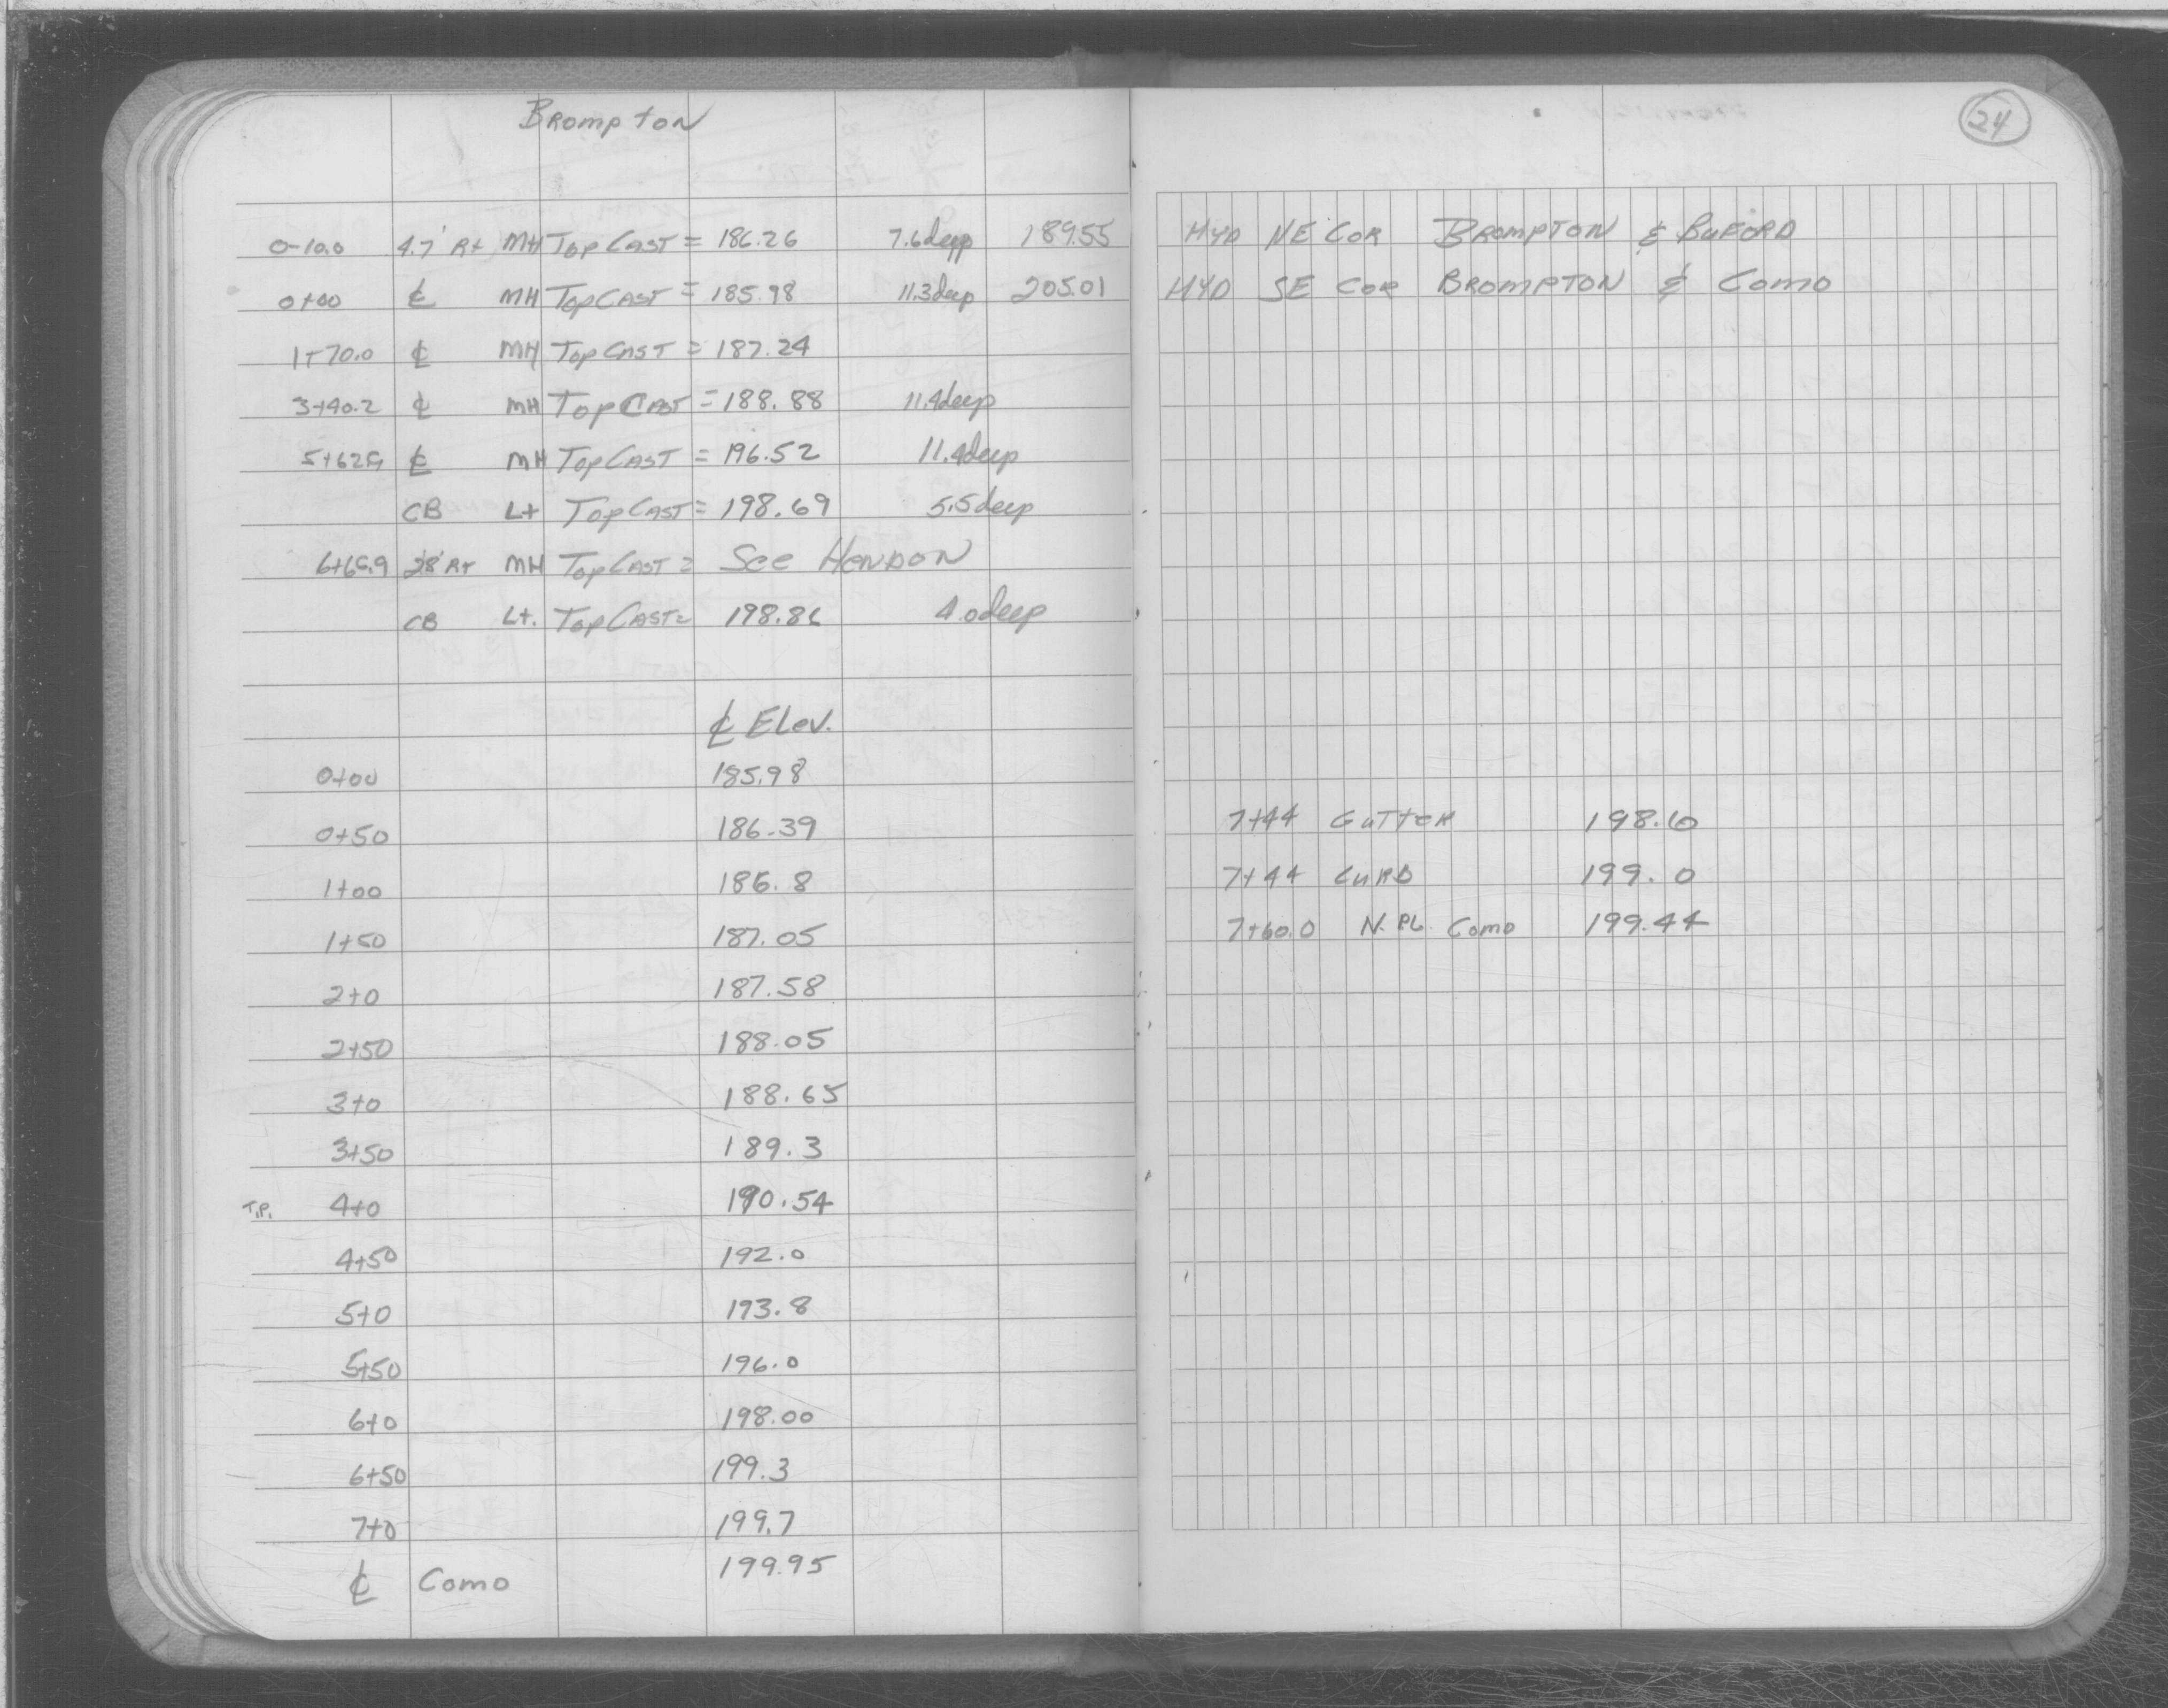 Brompton
24
0-10.0 4.7' Rt MH Top Cast = 186.26 7.6 deep 189.55 HYD NE COR BROMPTON & BUFORD
0+00 ℄ MH Top Cast = 185.98 11.3 deep 205.01 HYD SE COR BROMPTON & Como
1+70.0 ℄ MH Top Cast = 187.24
3+40.2 ℄ MH Top Cast = 188.88 11.4 deep
℄ MH Top Cast = 196.52 11.4 deep
CB Lt Top Cast = 198.69 5.5 deep
28' Rt MH Top Cast = See Hendon
CB Lt. Top Cast = 198.86 4.0 deep
℄ Elev.
0+00 185.98
0+50 186.39 7+44 Gutter 198.6
1+00 186.8 7+44 Curb 199.0
1+50 187.05 7+60.0 N. PL. Como 199.44
2+0 187.58
2+50 188.05
3+0 188.65
3+50 189.3
T.P. 4+0 190.54
4+50 192.0
5+0 193.8
5+50 196.0
6+0 198.00
6+50 199.3
7+0 199.7
℄ Como 199.95